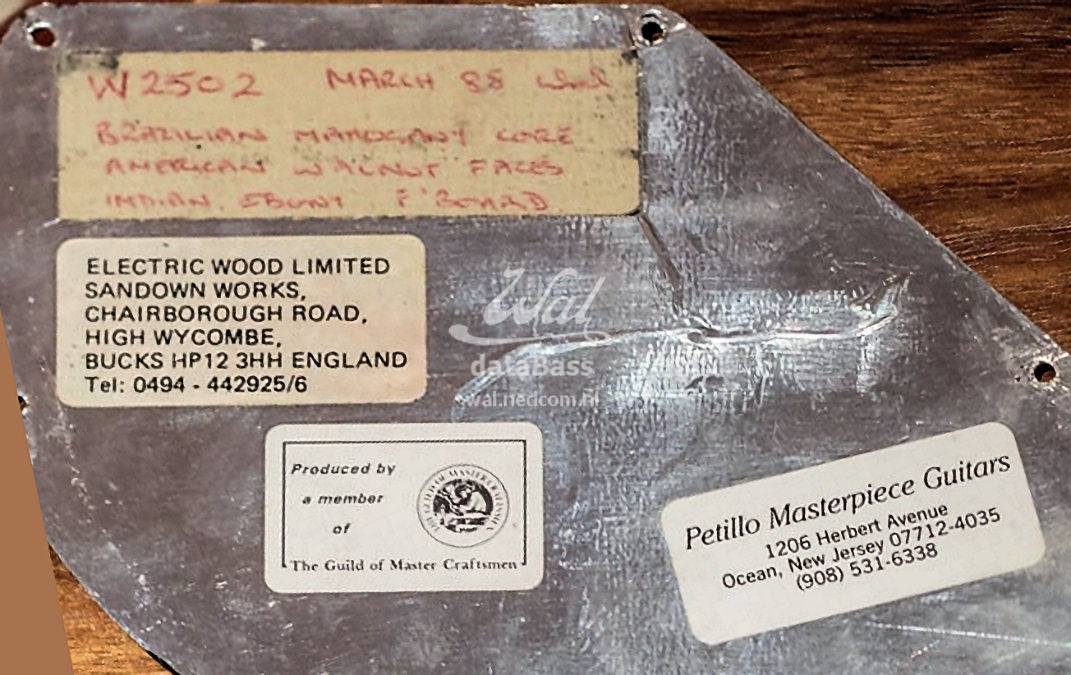 W2502 MARCH 88 Wal
BRAZILIAN MAHOGANY CORE
AMERICAN WALNUT FACES
INDIAN EBONY F'BOARD
ELECTRIC WOOD LIMITED
SANDOWN WORKS,
CHAIRBOROUGH ROAD,
HIGH WYCOMBE,
BUCKS HP12 3HH ENGLAND
Tel: 0494 - 442925/6
Wal
dataBass
wal.nedcom.nl
Produced by
a member
of
The Guild of Master Craftsmen
THE GUILD OF MASTER CRAFTSMEN
Petillo Masterpiece Guitars
1206 Herbert Avenue
Ocean, New Jersey 07712-4035
(908) 531-6338